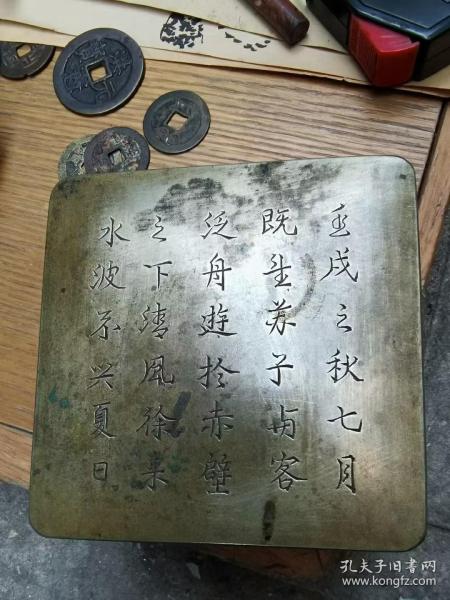 壬戌之秋七月
既望苏子与客
泛舟遊於赤壁
之下清风徐来
水波不兴夏日
孔夫子旧书网
www.kongfz.com